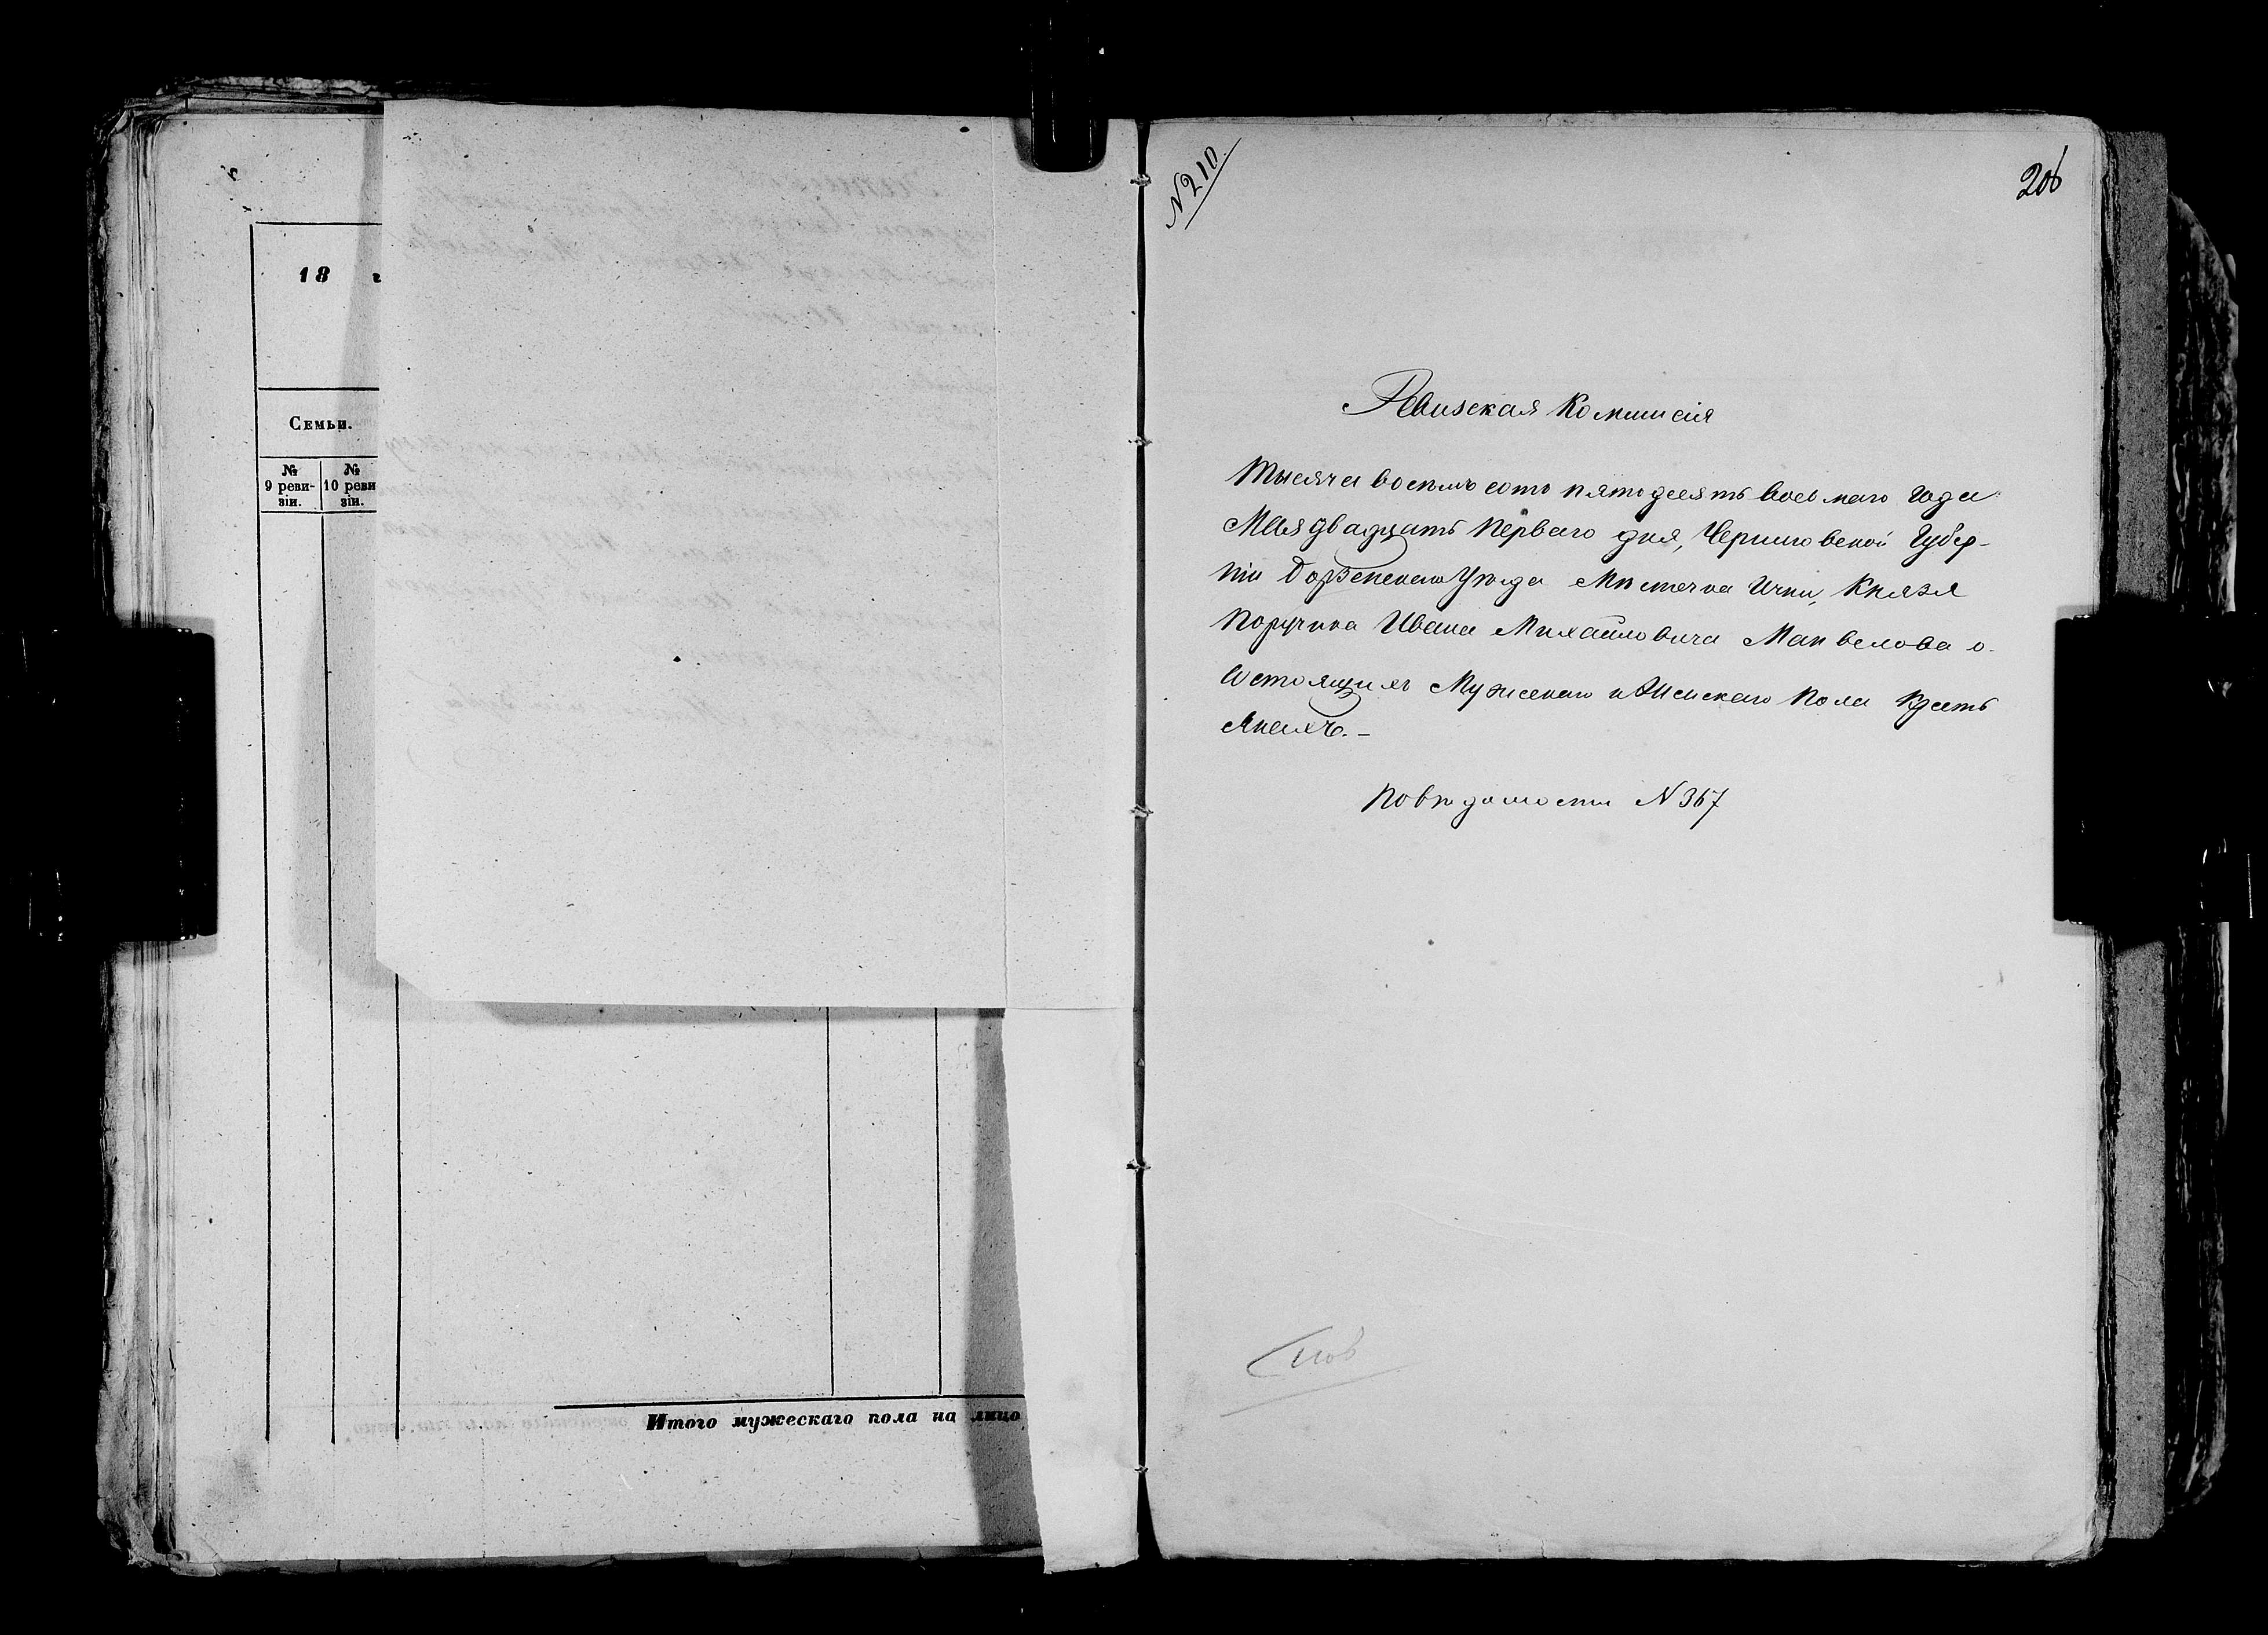 18 г
Семьи.
№ 9 реви-зіи.
№ 10 реви зіи.
Итого мужескаго пола на лицо
N 210.
206
Ревизская Коммисія
Тысяча восемь сотъ пятодесять восьмаго года
Мая двадцать перваго дня, Черниговской Губер-
ніи Борзенскаго Уѣзда Мѣстечка Ични, Князя
Поручика Ивана Михайловича Манвелова о.
состоящихъ Мужескаго и Женскаго пола крест
янахъ. –
По вѣдомости N 367